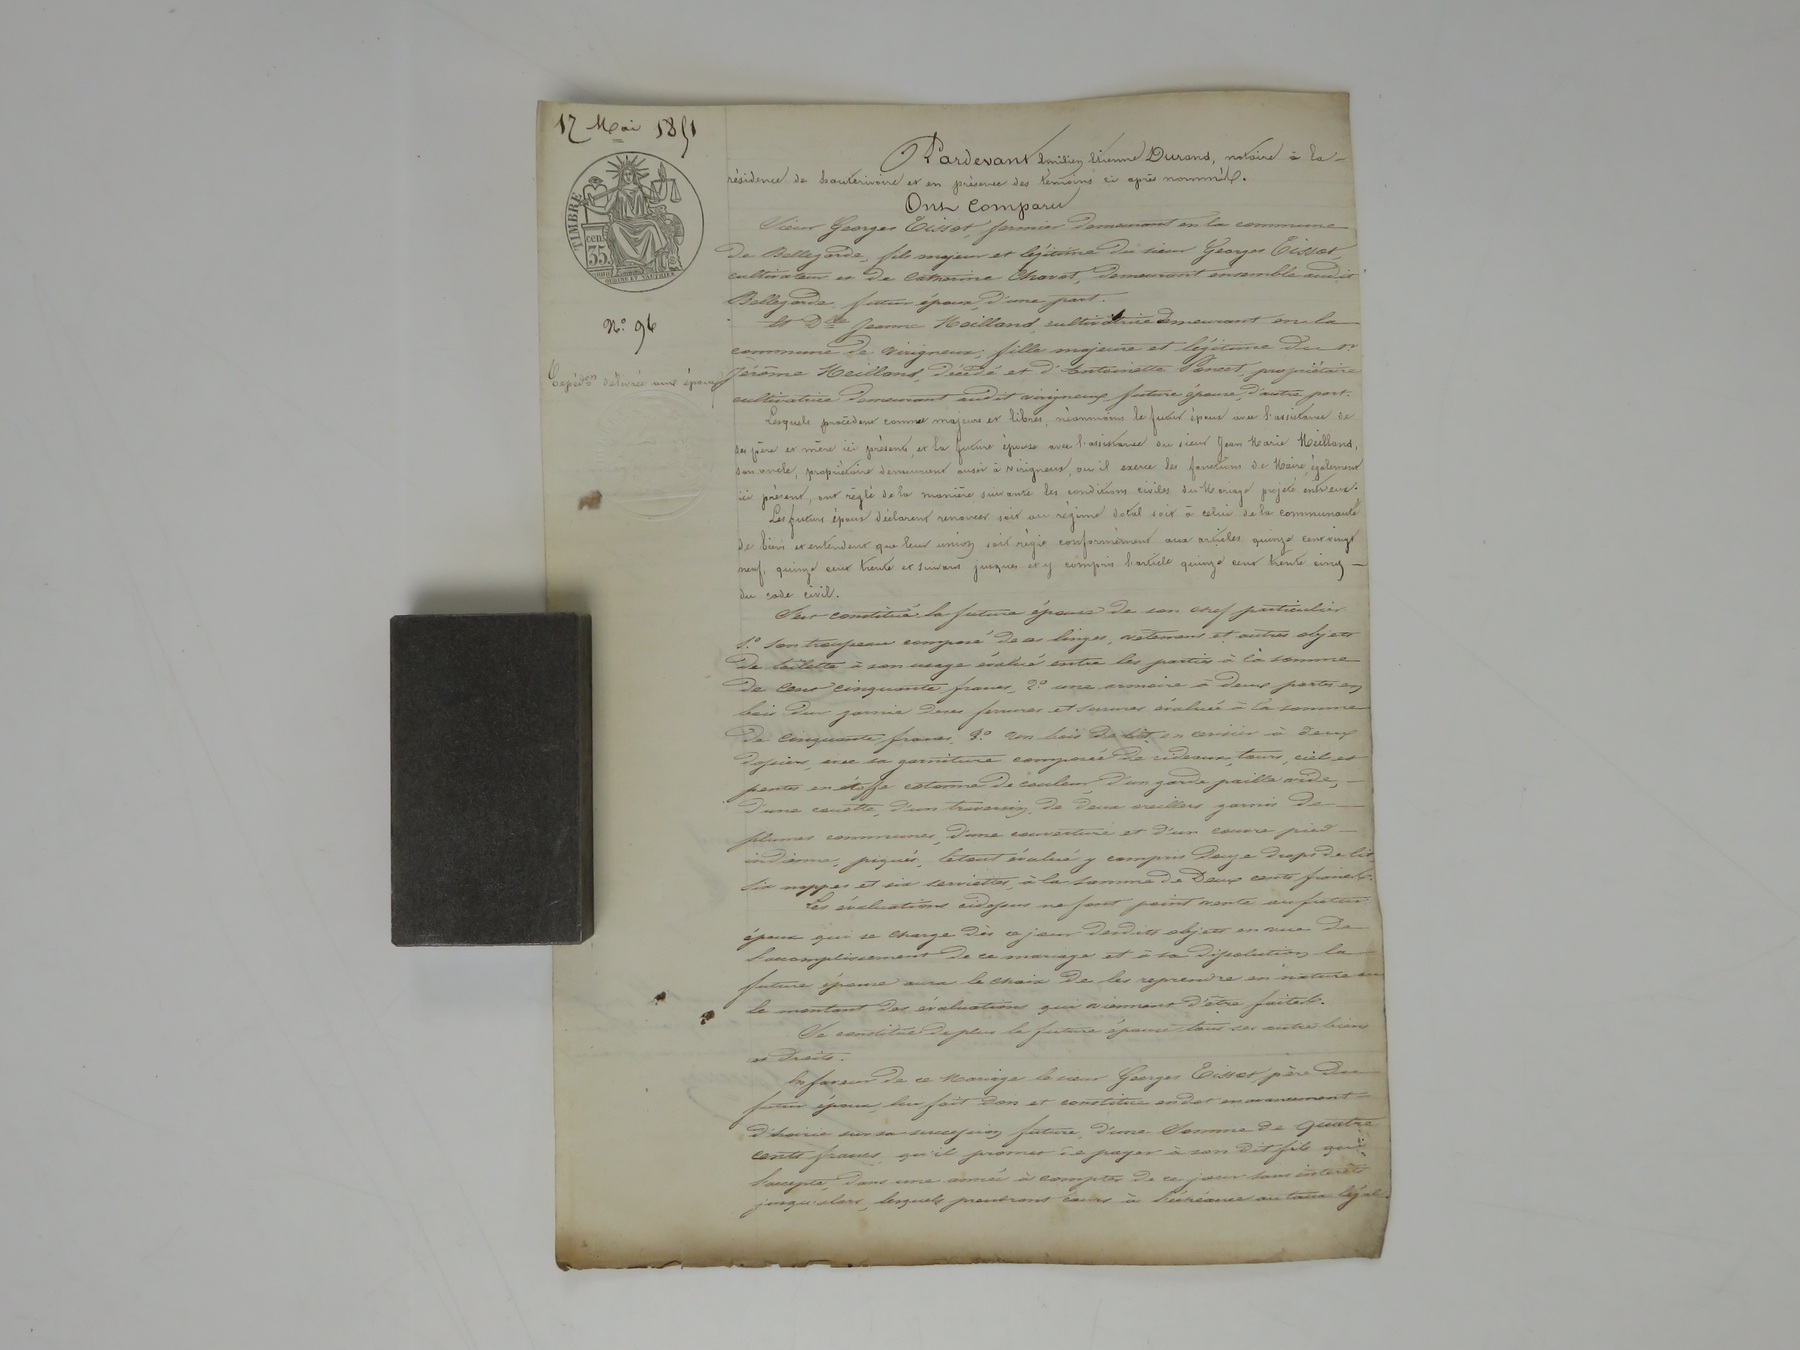 17 Mai 1851
TIMBRE
cen.
35.
Nº 96
Expéd.on délivrée aux époux
Pardevant Emilien Etienne Durand, notaire à la
résidence de hauterivoire et en présence des témoins ci après nommés.
Ont Comparu
Sieur Georges Tissot, fermier demeurant en la commune
de Bellegarde, fils majeur et légitime du sieur Georges Tissot,
cultivateur et de Catherine Chavot, demeurant ensemble audit
Bellegarde, futur époux, d'une part.
Et Dlle Jeanne Meilland, cultivatrice demeurant en la
commune de virigneux, fille majeure et légitime du Sr
Jérôme Meilland, décédé et d'Antoinette Poncet, propriétaire
cultivatrice demeurant audit virigneux, future épouse, d'autre part.
Lesquels procèdent comme majeurs et libres, néanmoins le futur époux avec l'assistance de
ses père et mère ici présents, et la future épouse avec l'assistance du sieur Jean Marie Meilland,
son oncle, propriétaire demeurant aussi à virigneux, ou il exerce les fonctions de Maire, également
ici présent, ont réglé de la manière suivante les conditions civiles du Mariage projeté entr'eux.
Les futurs époux déclarent renoncer soit au régime dotal soit à celui de la communauté
de biens et entendent que leur union soit régie conformément aux articles quinze cent vingt
neuf, quinze cent trente et suivans jusques et y compris l'article quinze cent trente cinq
du code civil.
S'est constitué la future épouse de son chef particulier
1º Son trousseau composé de ses linges, vêtemens et autres objets
de toilette à son usage évalué entre les parties à la somme
de cent cinquante francs, 2º une armoire à deux portes en
bois dur garnie de ses ferrures et serrures évaluée à la somme
de cinquante francs, 3º un bois de lit en cerisier à deux
dossiers, avec sa garniture composée de rideaux, tours, ciel et
pentes en étoffe cotonne de couleur, d'un garde paille vide,
d'une couette, d'un traversin, de deux oreillers garnis de
plumes communes, d'une couverture et d'un couvre pied
indienne, piqués, le tout évalué y compris douze draps de lit,
six nappes et six serviettes, à la somme de Deux cents francs.
Les évaluations cidessus ne font point vente au futur
époux qui se charge dès ce jour desdits objets en vue de
l'accomplissement de ce mariage et à sa dissolution la
future épouse aura le choix de les reprendre en nature ou
le montant des évaluations qui viennent d'être faites.
Se constitue de plus la future épouse tous ses autre biens
et droits.
En faveur de ce Mariage le sieur Georges Tissot père du
futur époux, lui fait don et constitue en dot en avancement
d'hoirie sur sa succession future, d'une Somme de Quatre
cents francs, qu'il promet de payer à son dit fils qui
l'accepte, dans une année à compter de ce jour sans intérêts
jusqu'alors, lesquels prendront cours à l'échéance au taux légal.